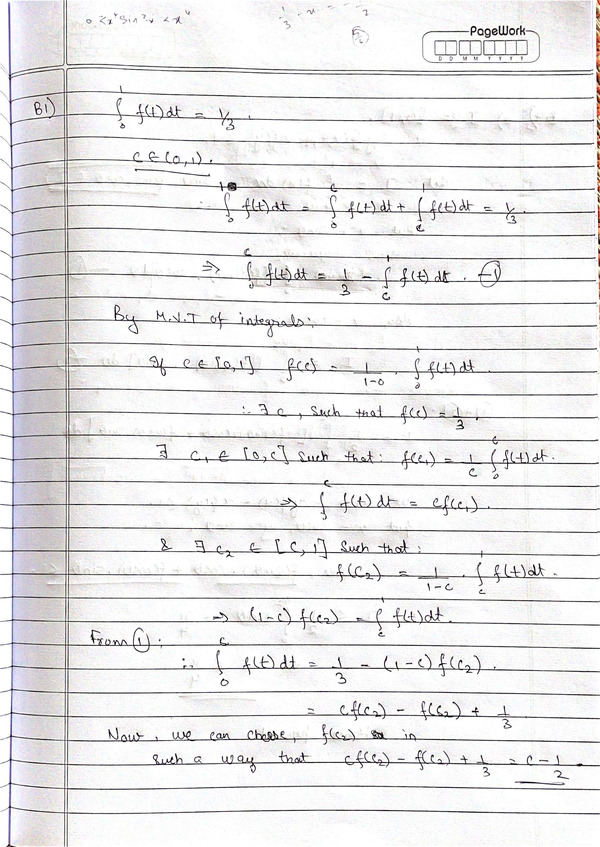 0 < x⁴ sin²x < x⁴
PageWork
D D M M Y Y Y Y
B1) ∫₀¹ f(t) dt = 1/3.
c ∈ (0,1).
∫₀¹ f(t) dt = ∫₀ᶜ f(t) dt + ∫_c¹ f(t) dt = 1/3.
⇒ ∫₀ᶜ f(t) dt = 1/3 − ∫_c¹ f(t) dt. —①
By M.V.T of integrals:
If c ∈ [0,1] f(c) = 1/(1-0) · ∫₀¹ f(t) dt.
∴ ∃ c, such that f(c) = 1/3.
∃ c₁ ∈ [0,c] such that: f(c₁) = 1/c ∫₀ᶜ f(t) dt.
⇒ ∫₀ᶜ f(t) dt = c f(c₁).
& ∃ c₂ ∈ [c,1] such that:
f(c₂) = 1/(1-c) · ∫_c¹ f(t) dt.
⇒ (1-c) f(c₂) = ∫_c¹ f(t) dt.
From ①:
∴ ∫₀ᶜ f(t) dt = 1/3 − (1-c) f(c₂).
= c f(c₂) − f(c₂) + 1/3
Now, we can choose, f(c₂) in
such a way that c f(c₂) − f(c₂) + 1/3 = c − 1/2.